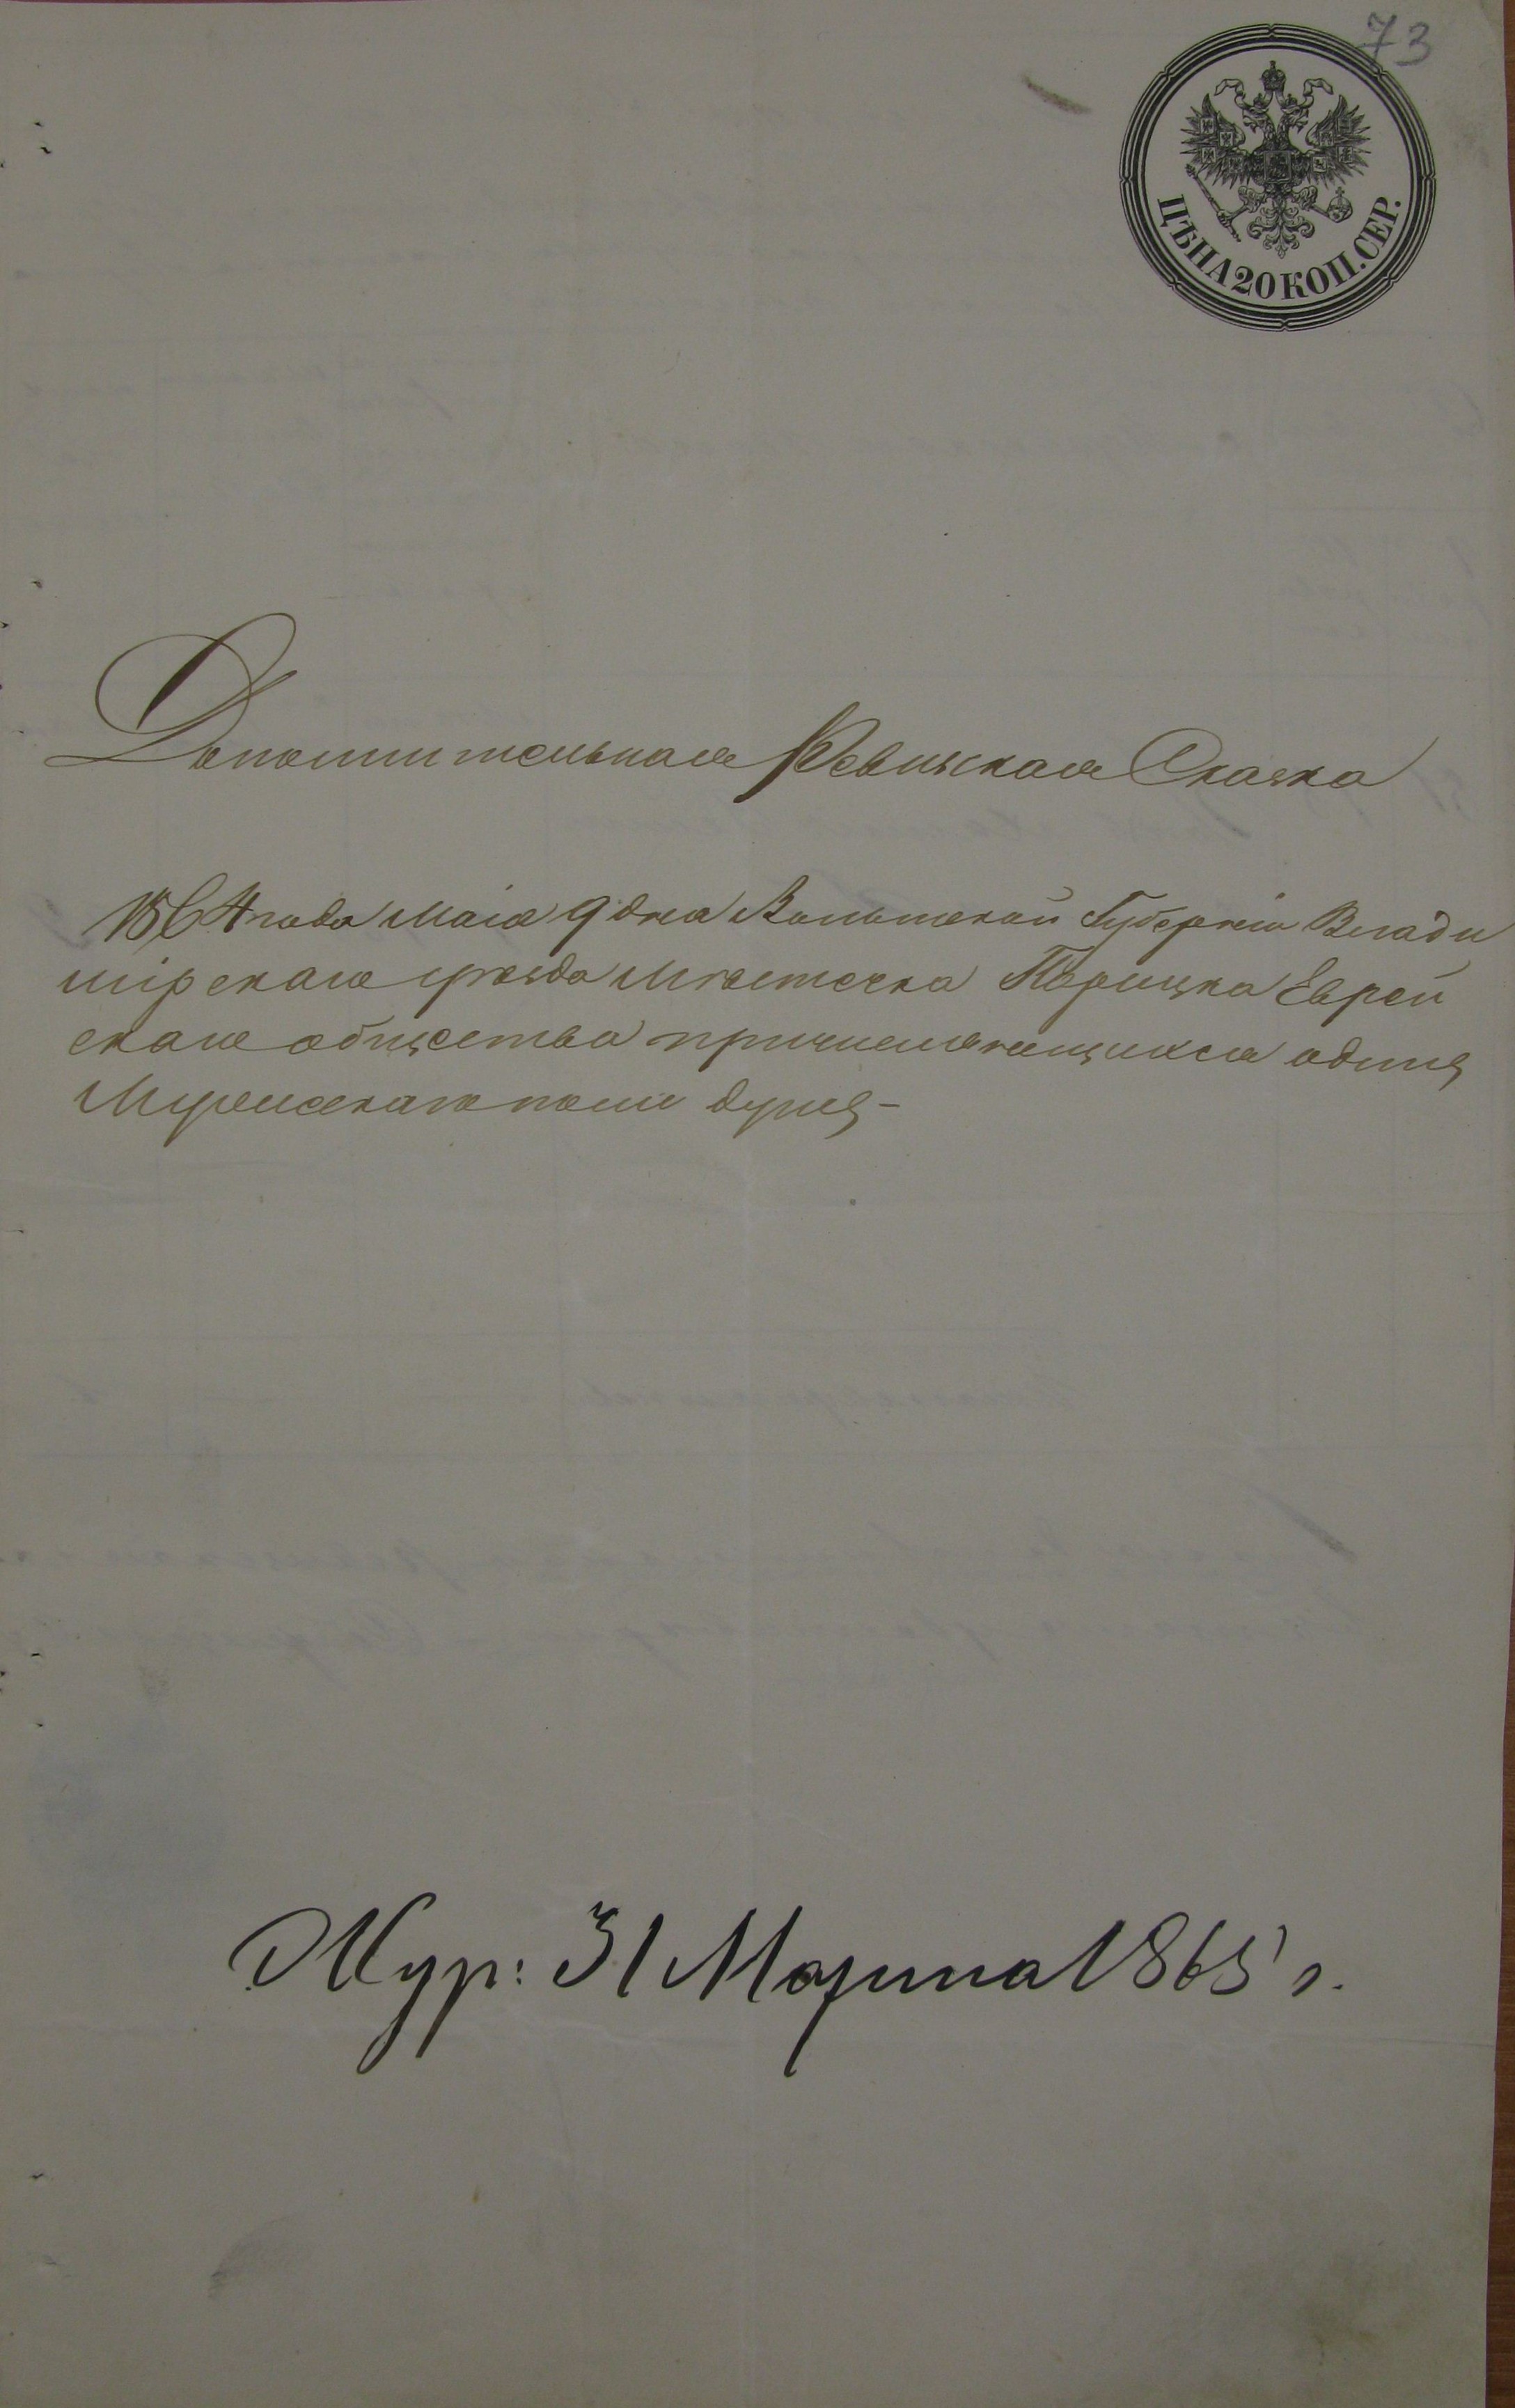 73
ЦѢНА 20 КОП. СЕР.
Дополнительная Ревизская Сказка
1864 года Маія 9 дня Волынской Губерніи Влади
мірскаго уѣзда Мѣстечка Порицка Еврей
скаго общества причисляющихся одинъ
Мужескаго пола душъ-
Жур: 31 Марта 1865 г.